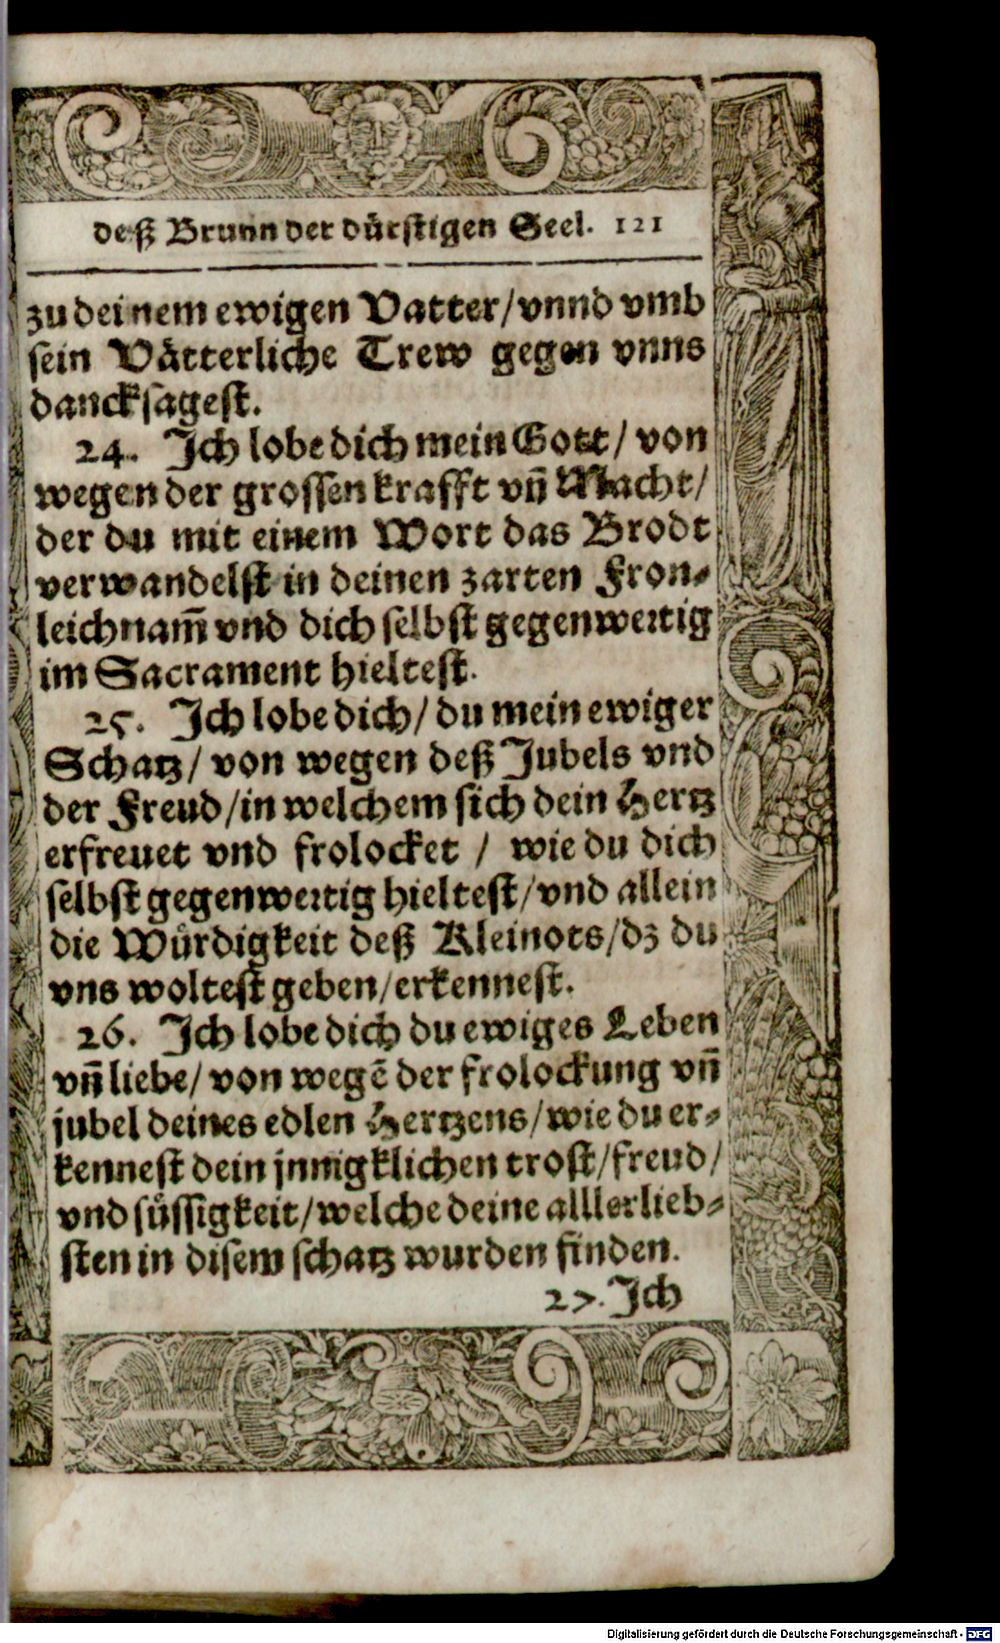 deß Brunn der dürstigen Seel. 121
zu deinem ewigen Vatter/vnnd vmb
sein Vätterliche Trew gegen vnns
dancksagest.
24. Ich lobe dich mein Gott/ von
wegen der grossen krafft vn̄ Macht/
der du mit einem Wort das Brodt
verwandelst in deinen zarten Fron-
leichnam̄ vnd dich selbst gegenwertig
im Sacrament hieltest.
25. Ich lobe dich/ du mein ewiger
Schatz/ von wegen deß Jubels vnd
der Freud/in welchem sich dein Hertz
erfrevet vnd frolocket / wie du dich
selbst gegenwertig hieltest/vnd allein
die Würdigkeit deß Kleinots/dz du
vns woltest geben/erkennest.
26. Ich lobe dich du ewiges Leben
vn̄ liebe/ von wegē der frolockung vn̄
jubel deines edlen Hertzens/wie du er-
kennest dein jnnigklichen trost/freud/
vnd süssigkeit/welche deine alllerlieb-
sten in disem schatz wurden finden.
27. Ich
Digitalisierung gefördert durch die Deutsche Forschungsgemeinschaft - DFG